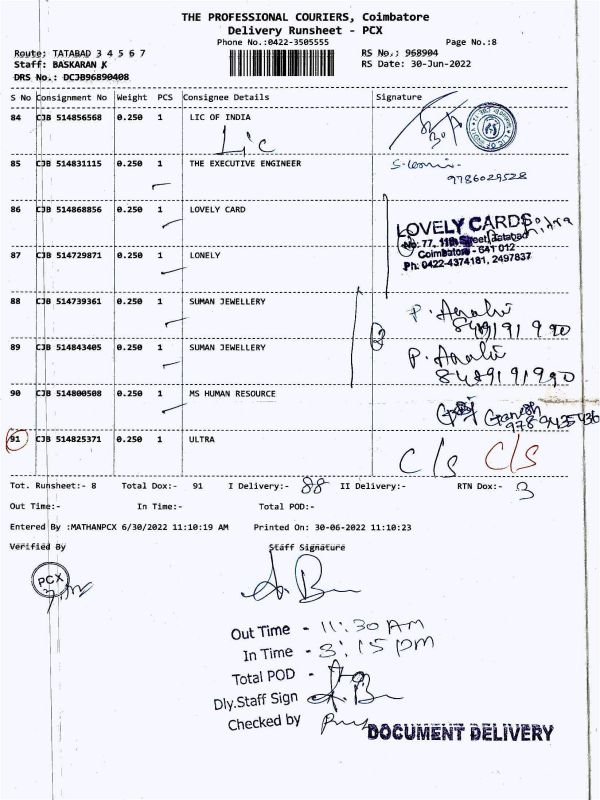 THE PROFESSIONAL COURIERS, Coimbatore
Delivery Runsheet - PCX
Phone No.:0422-3505555 Page No.:8
Route: TATABAD 3 4 5 6 7 RS No.: 968904
Staff: BASKARAN K RS Date: 30-Jun-2022
DRS No.: DCJB96890408
S No Consignment No Weight PCS Consignee Details Signature
84 CJB 514856568 0.250 1 LIC OF INDIA
Lic
85 CJB 514831115 0.250 1 THE EXECUTIVE ENGINEER
9786029528
86 CJB 514868856 0.250 1 LOVELY CARD
LOVELY CARDS
No: 77, 11th Street, Tatabad
Coimbatore - 641 012
Ph: 0422-4374181, 2497837
87 CJB 514729871 0.250 1 LONELY
88 CJB 514739361 0.250 1 SUMAN JEWELLERY
89 CJB 514843405 0.250 1 SUMAN JEWELLERY
90 CJB 514800508 0.250 1 MS HUMAN RESOURCE
Ganesh
91 CJB 514825371 0.250 1 ULTRA
C/S C/S
Tot. Runsheet:- 8 Total Dox:- 91 I Delivery:- 88 II Delivery:- RTN Dox:- 3
Out Time:- In Time:- Total POD:-
Entered By :MATHANPCX 6/30/2022 11:10:19 AM Printed On: 30-06-2022 11:10:23
Verified By Staff Signature
PCX
Out Time - 11:30 AM
In Time - 3:15 PM
Total POD -
Dly.Staff Sign
Checked by
DOCUMENT DELIVERY